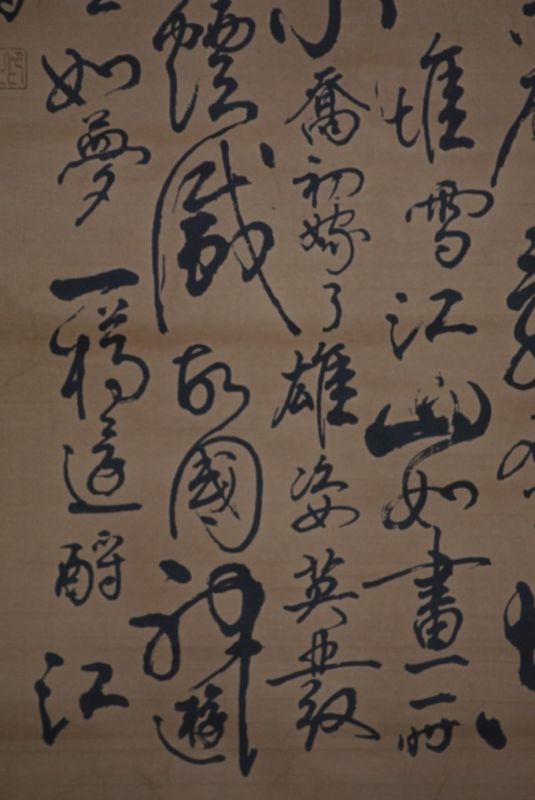 堆雪江山如畫一時
小喬初嫁了雄姿英發
煙滅故國神遊
如夢一樽還酹江